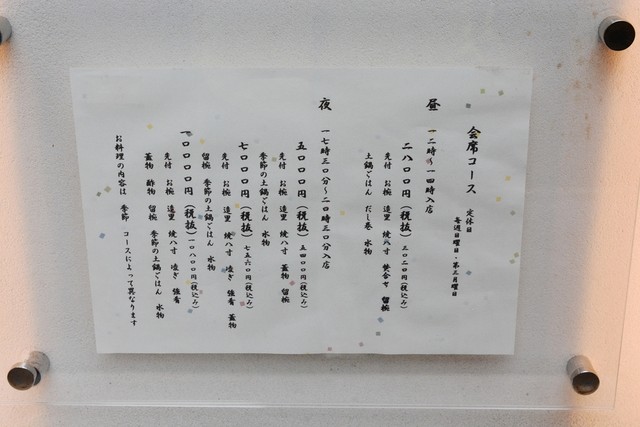 会席コース
定休日
毎週日曜日・第三月曜日
昼 一二時〜一四時入店
二八〇〇円(税抜)三〇二四円(税込み)
先付 お椀 造里 焼八寸 焚合せ 留椀
土鍋ごはん だし巻 水物
夜 一七時三〇分〜二〇時三〇分入店
五〇〇〇円(税抜)五四〇〇円(税込み)
先付 お椀 造里 焼八寸 蓋物 留椀
季節の土鍋ごはん 水物
七〇〇〇円(税抜)七五六〇円(税込み)
先付 お椀 造里 焼八寸 凌ぎ 強肴 蓋物
留椀 季節の土鍋ごはん 水物
一〇〇〇〇円(税抜)一〇八〇〇円(税込み)
先付 お椀 造里 焼八寸 凌ぎ 強肴
蓋物 酢物 留椀 季節の土鍋ごはん 水物
お料理の内容は 季節 コースによって異なります